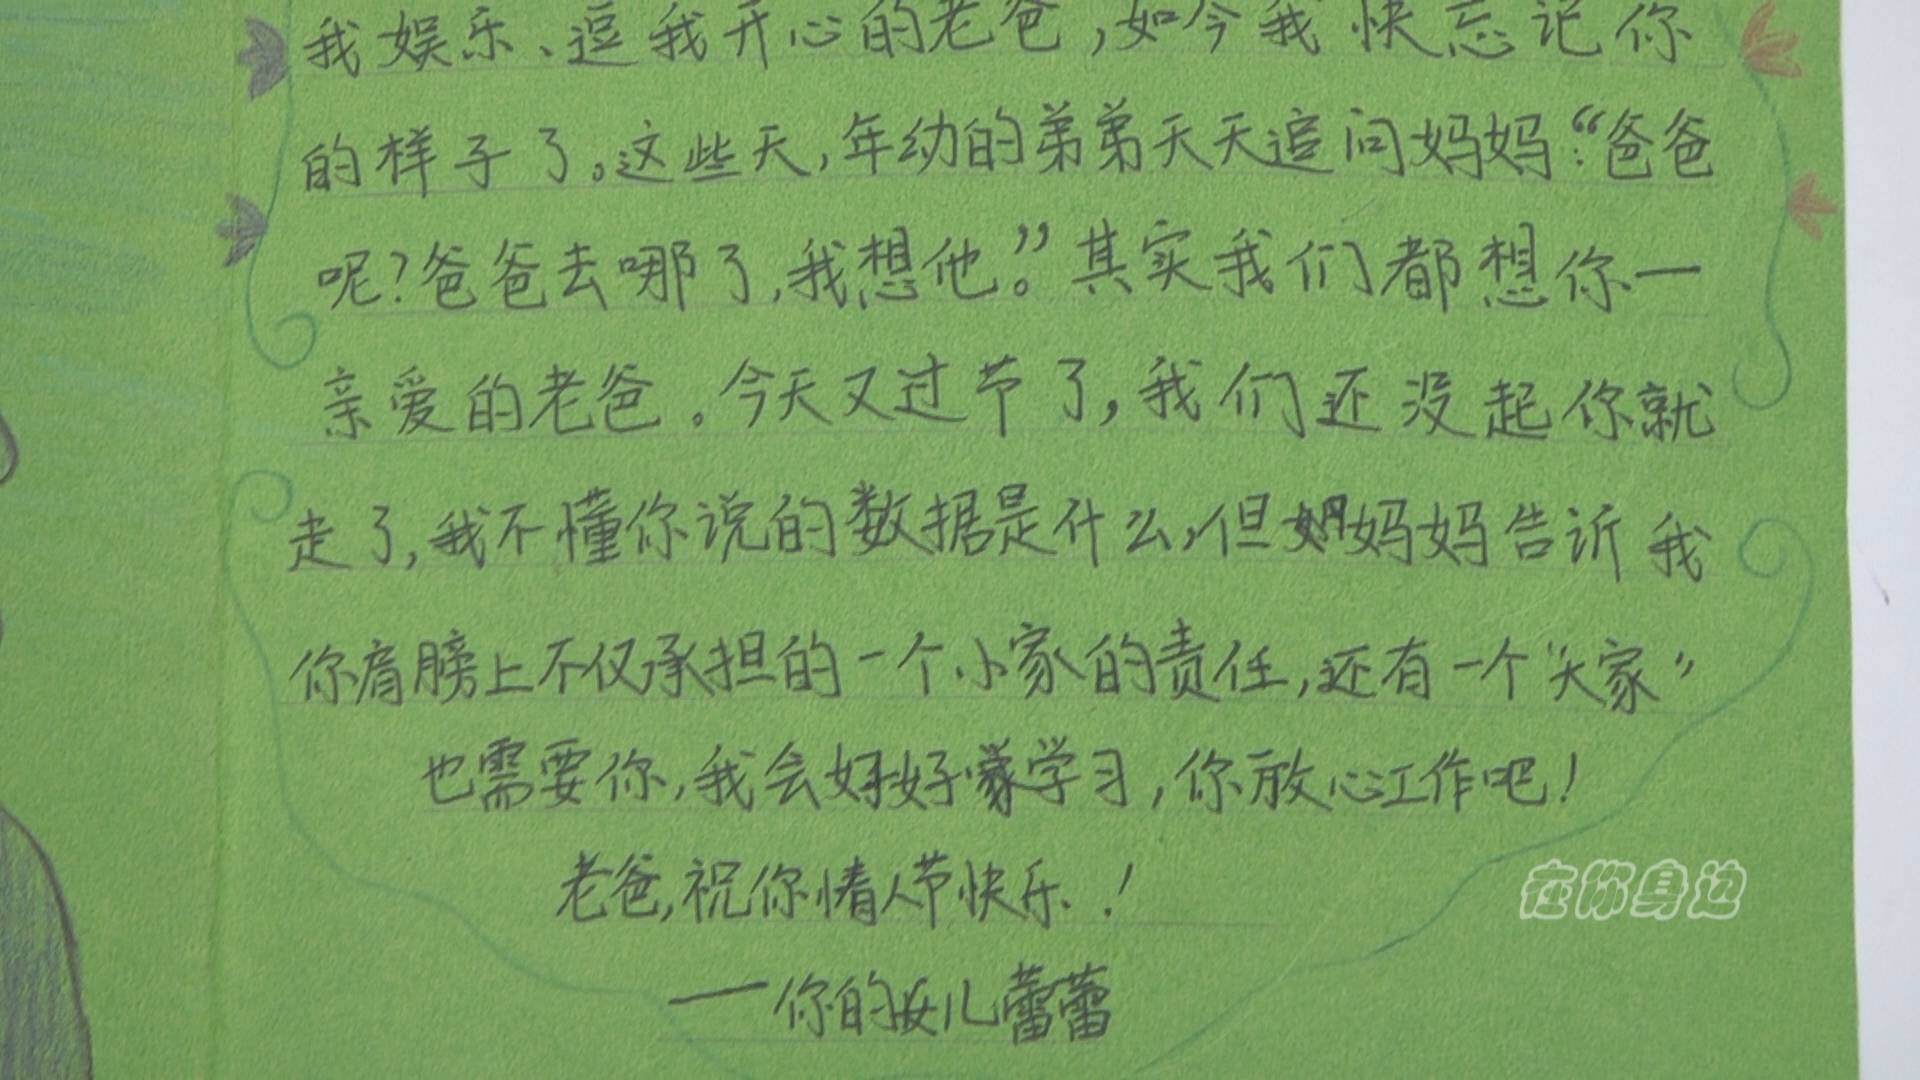 我娱乐、逗我开心的老爸,如今我快忘记你
的样子了。这些天,年幼的弟弟天天追问妈妈:“爸爸
呢?爸爸去哪了,我想他。”其实我们都想你一
亲爱的老爸。今天又过节了,我们还没起你就
走了,我不懂你说的数据是什么,但妈妈告诉我
你肩膀上不仅承担的一个小家的责任,还有一个“大家”
也需要你,我会好好学习,你放心工作吧!
老爸,祝你情人节快乐!
——你的女儿蕾蕾
在你身边